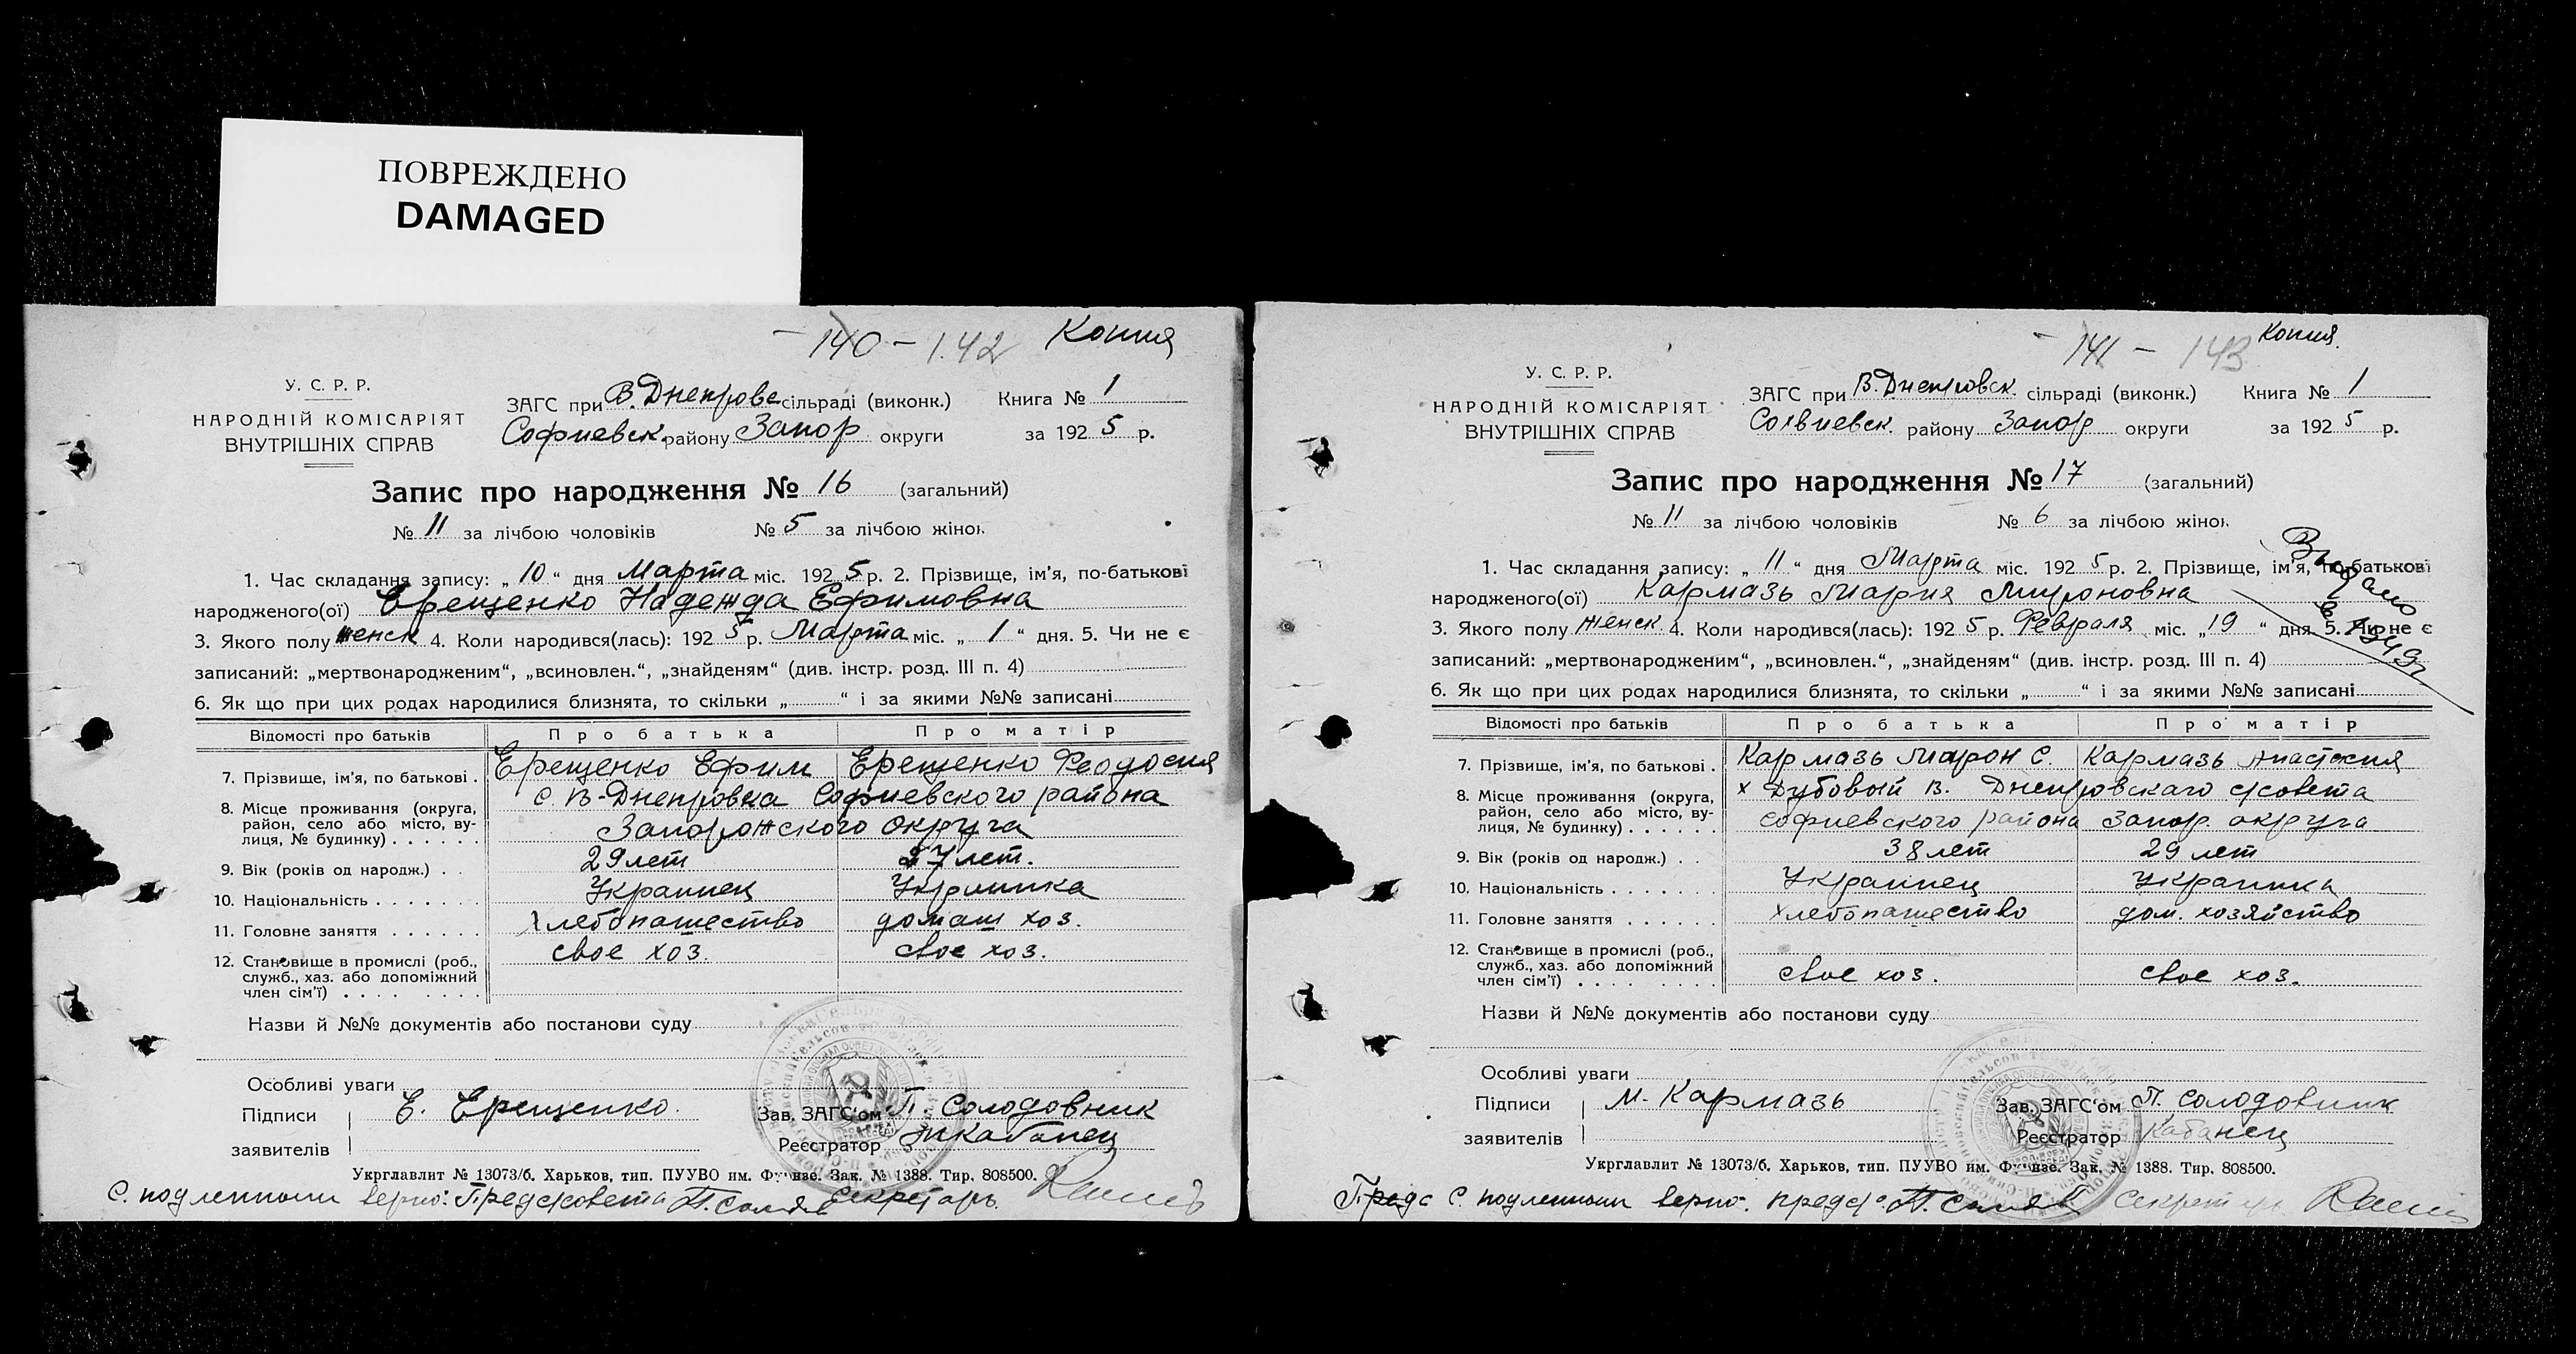 ПОВРЕЖДЕНО
DAMAGED
— 140 — 142 Копия
У. С. Р. Р.
НАРОДНІЙ КОМІСАРІЯТ
ВНУТРІШНІХ СПРАВ
ЗАГС при В. Днепровс сільраді (виконк.) Книга № 1
Софиевск. району Запор округи за 1925 р.
Запис про народження № 16 (загальний)
№ 11 за лічбою чоловіків № 5 за лічбою жінок
1. Час складання запису: „ 10 “ дня Марта міс. 1925 р. 2. Прізвище, ім’я, по-батькові
народженого(ої) Ерещенко Надежда Ефимовна
3. Якого полу женск 4. Коли народився(лась): 1925 р. Марта міс. „ 1 “ дня. 5. Чи не є
записаний: „мертвонародженим“, „всиновлен.“, „знайденям“ (див. інстр. розд. III п. 4)
6. Як що при цих родах народилися близнята, то скільки „ “ і за якими №№ записані
Відомості про батьків Про батька Про матір
7. Прізвище, ім’я, по батькові . Ерещенко Ефим Ерещенко Феодосия
8. Місце проживання (округа, с. В-Днепровка Софиевского района
район, село або місто, ву-
лиця, № будинку) . . . . . . Запорожского округа
9. Вік (років од народж.) . . 29 лет 27 лет.
10. Національність . . . . . . . Украинец Украинка
11. Головне заняття . . . . . . Хлебопашество домаш хоз.
12. Становище в промислі (роб., свое хоз. свое хоз.
служб., хаз. або допоміжний
член сім’ї) . . . . . . . .
Назви й №№ документів або постанови суду
Особливі уваги
Підписи Е. Ерещенко. Зав. ЗАГС‘ом П. Солодовник
заявителів Реєстратор Кабанец
Укрглавлит № 13073/б. Харьков, тип. ПУУВО им. Фрунзе. Зак. № 1388. Тир. 808500.
С подленным верно: Пред с/совета Секретарь
— 141 — 143 Копия.
У. С. Р. Р.
НАРОДНІЙ КОМІСАРІЯТ
ВНУТРІШНІХ СПРАВ
ЗАГС при В. Днепровск. сільраді (виконк.) Книга № 1
Софиевск. району Запор округи за 1925 р.
Запис про народження № 17 (загальний)
№ 11 за лічбою чоловіків № 6 за лічбою жінок
Выдано
в 1949г
1. Час складання запису: „ 11 “ дня Марта міс. 1925 р. 2. Прізвище, ім’я, по-батькові
народженого(ої) Кармазь Мария Мироновна
3. Якого полу женск. 4. Коли народився(лась): 1925 р. Февраля міс. „19 “ дня. 5. Чи не є
записаний: „мертвонародженим“, „всиновлен.“, „знайденям“ (див. інстр. розд. III п. 4)
6. Як що при цих родах народилися близнята, то скільки „ “ і за якими №№ записані
Відомості про батьків Про батька Про матір
7. Прізвище, ім’я, по батькові . Кармазь Мирон С. Кармазь Анастасия
8. Місце проживання (округа, х Дубовый В. Днепровскаго с/совета
район, село або місто, ву-
лиця, № будинку) . . . . . . Софиевского района Запор. округа
9. Вік (років од народж.) . . 38 лет 29 лет
10. Національність . . . . . . . Украинец Украинка
11. Головне заняття . . . . . . Хлебопашество дом. хозяйство
12. Становище в промислі (роб.,
служб., хаз. або допоміжний свое хоз. свое хоз.
член сім’ї) . . . . . . . .
Назви й №№ документів або постанови суду
Особливі уваги
Підписи М. Кармазь Зав. ЗАГС‘ом П. Солодовник
заявителів Реєстратор Кабанец
Укрглавлит № 13073/б. Харьков, тип. ПУУВО им. Фрунзе. Зак. № 1388. Тир. 808500.
Предс С. подленным верно: Секретарь